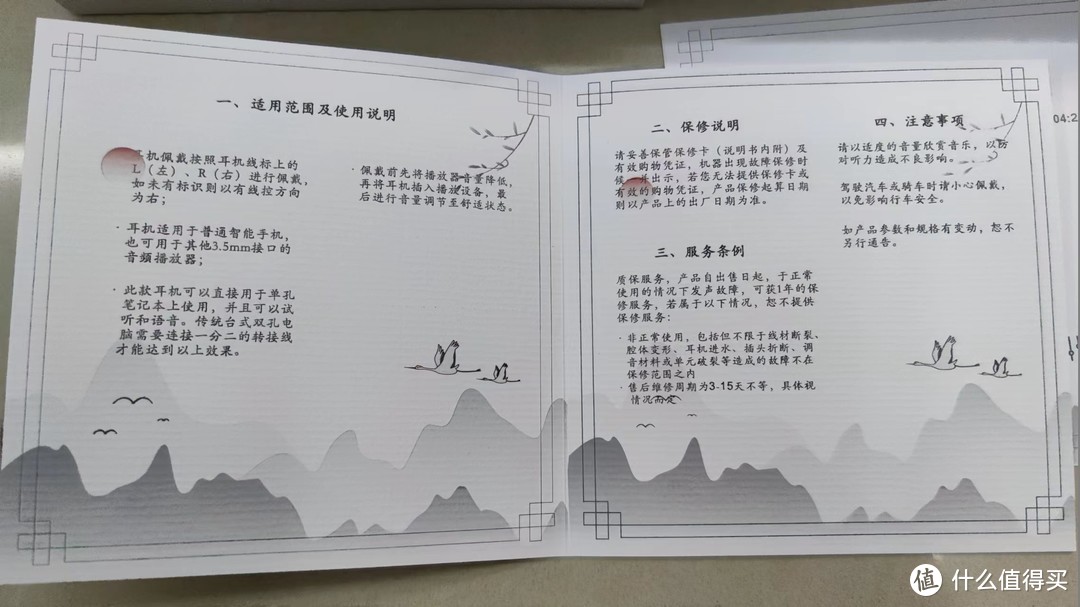 一、适用范围及使用说明
耳机佩戴按照耳机线标上的
L（左）、R（右）进行佩戴,
如未有标识则以有线控方向
为右；
· 耳机适用于普通智能手机,
也可用于其他3.5mm接口的
音频播放器；
· 此款耳机可以直接用于单孔
笔记本上使用，并且可以试
听和语音。传统台式双孔电
脑需要连接一分二的转接线
才能达到以上效果。
· 佩戴前先将播放器音量降低,
再将耳机插入播放设备，最
后进行音量调节至舒适状态。
二、保修说明
请妥善保管保修卡（说明书内附）及
有效购物凭证，机器出现故障保修时
候，并出示，若您无法提供保修卡或
有效的购物凭证，产品保修起算日期
则以产品上的出厂日期为准。
三、服务条例
质保服务，产品自出售日起，于正常
使用的情况下发声故障，可获1年的保
修服务，若属于以下情况，恕不提供
保修服务：
· 非正常使用，包括但不限于线材断裂、
腔体变形、耳机进水、插头折断、调
音材料或单元破裂等造成的故障不在
保修范围之内
· 售后维修周期为3-15天不等，具体视
情况而定
四、注意事项
请以适度的音量欣赏音乐，以防
对听力造成不良影响。
驾驶汽车或骑车时请小心佩戴,
以免影响行车安全。
如产品参数和规格有变动，恕不
另行通告。
04:2
值 什么值得买